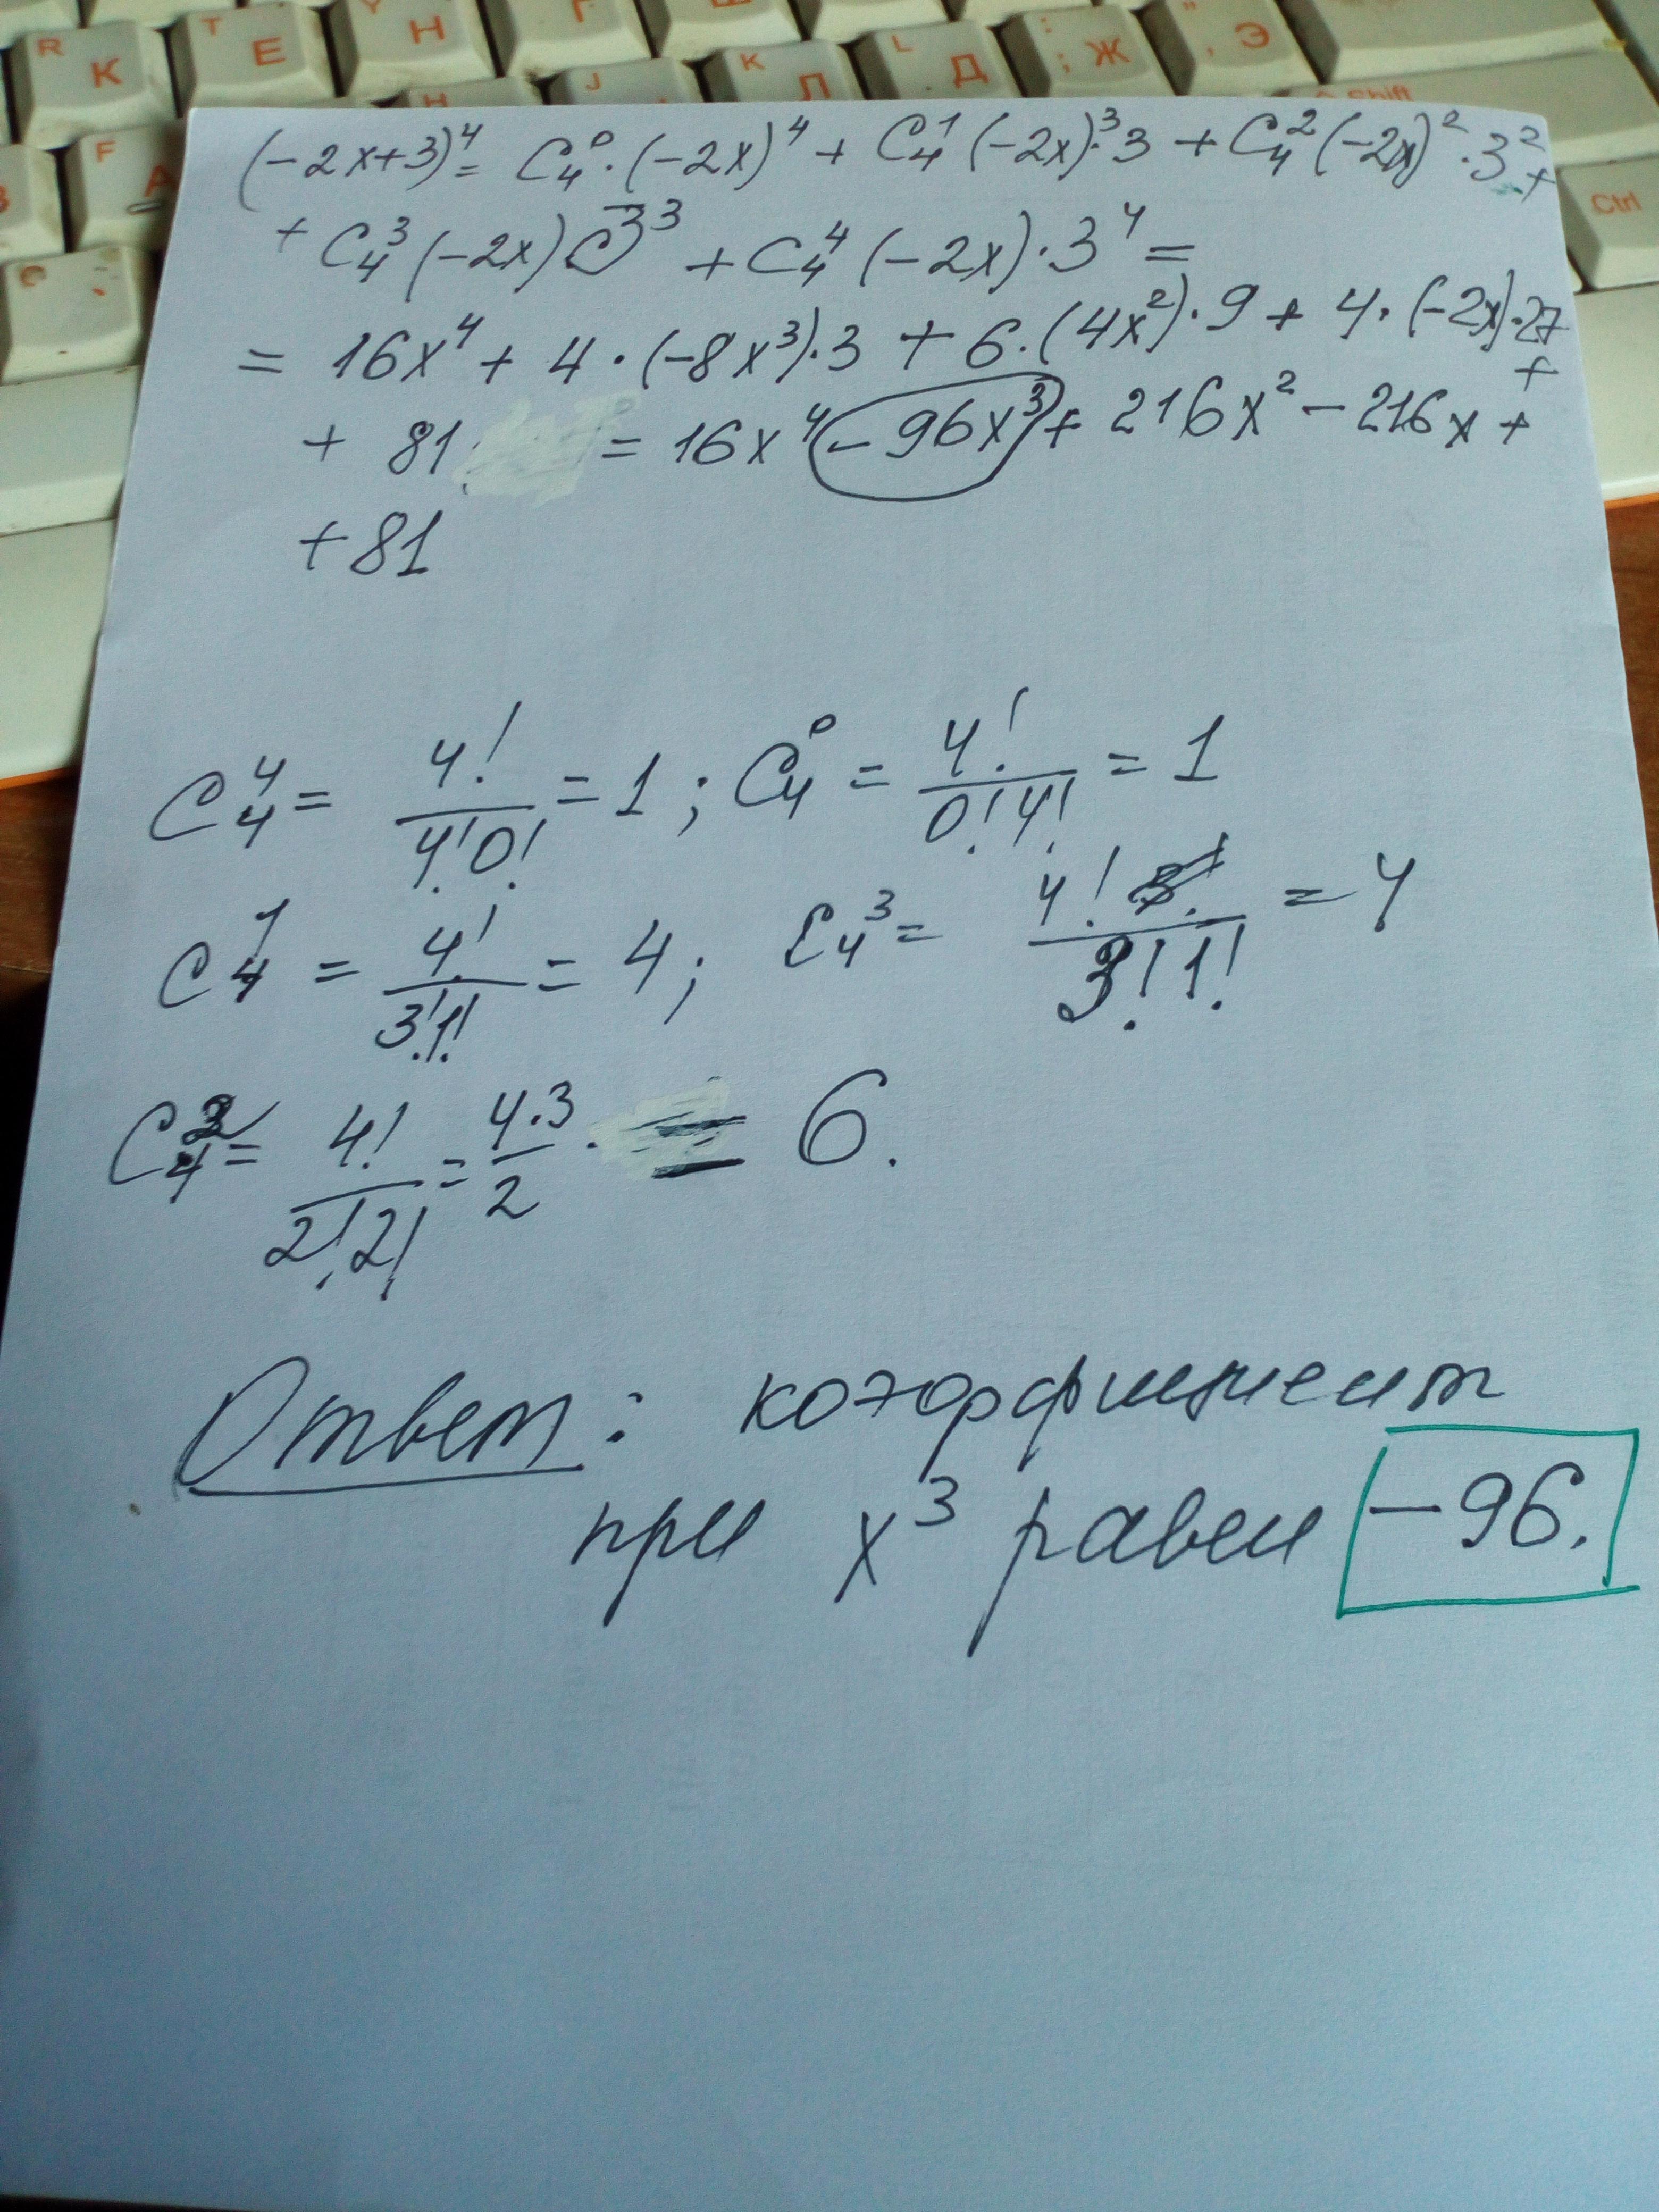 R К T Е Y Н Г Ш
F А H J K Л L Д : ; Ж " , Э Shift
Ctrl
(-2x+3)⁴ = C₄⁰·(-2x)⁴ + C₄¹(-2x)³·3 + C₄²(-2x)²·3² +
+ C₄³(-2x) 3³ + C₄⁴(-2x)·3⁴ =
= 16x⁴ + 4·(-8x³)·3 + 6·(4x²)·9 + 4·(-2x)·27 +
+ 81 = 16x⁴ - 96x³ + 216x² - 216x +
+ 81
C₄⁴ = 4!/4!0! = 1; C₄⁰ = 4!/0!4! = 1
C₄¹ = 4!/3!1! = 4; C₄³ = 4!/3!1! = 4
C₄² = 4!/2!2! = 4·3/2 · = 6.
Ответ: коэффициент
при x³ равен -96.